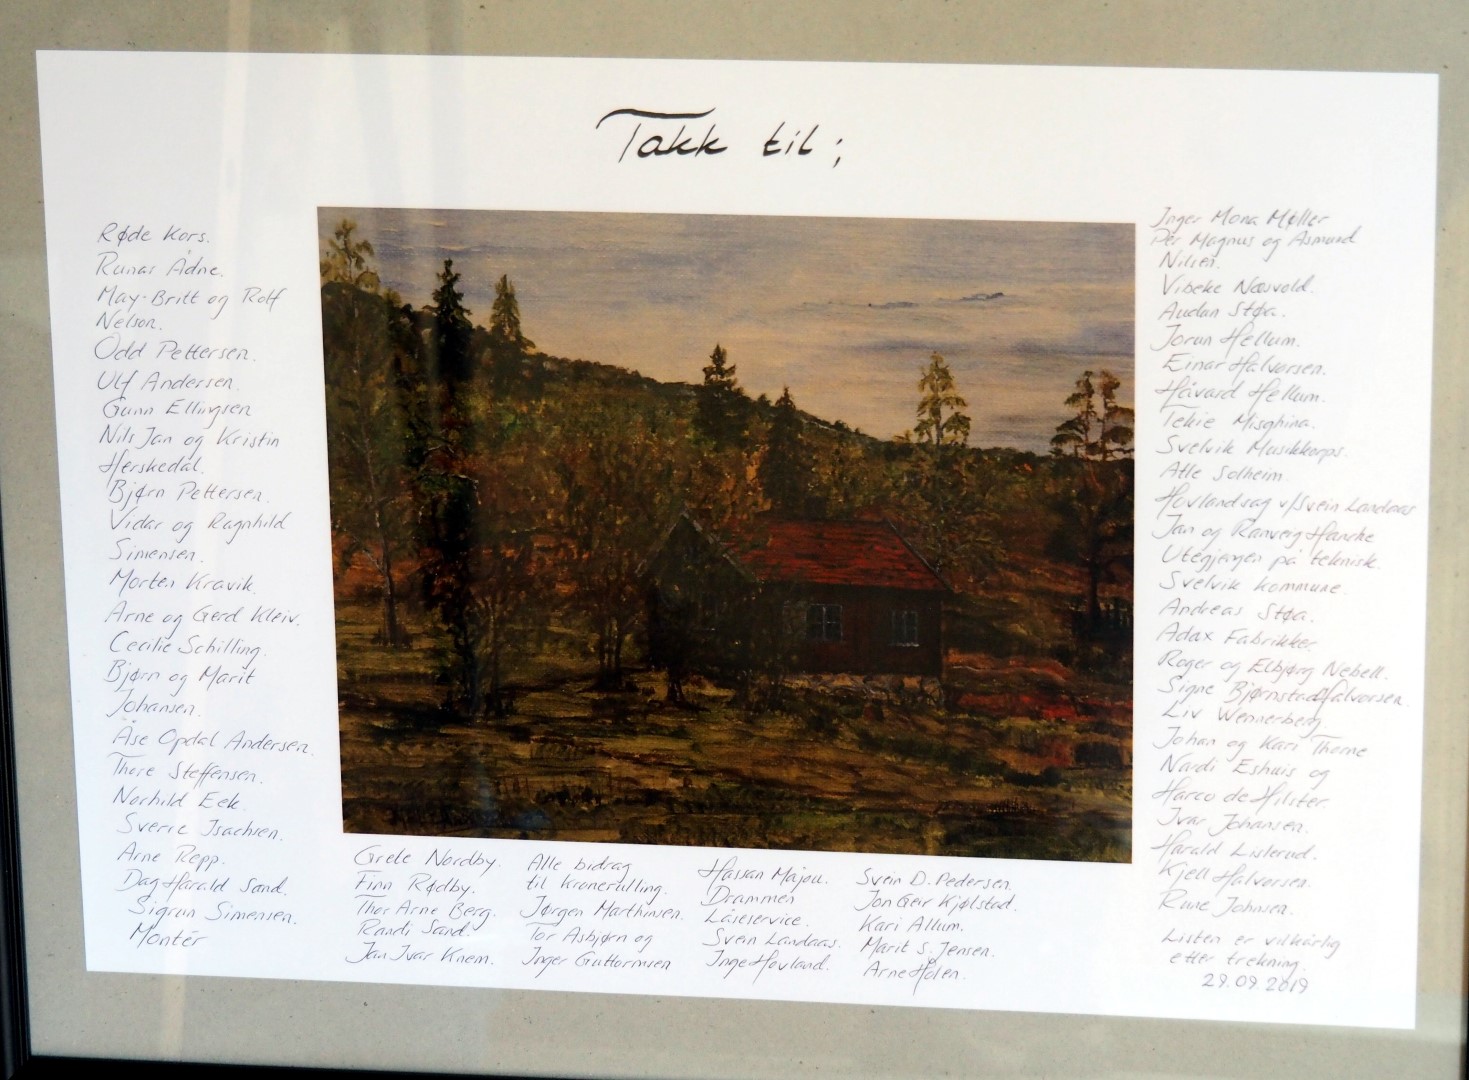 Takk til;
Røde Kors.
Runar Ådne.
May-Britt og Rolf
Nelson.
Odd Pettersen.
Ulf Andersen.
Gunn Ellingsen
Nils Jan og Kristin
Herskedal.
Bjørn Pettersen.
Vidar og Ragnhild
Simensen.
Morten Kravik.
Arne og Gerd Kleiv.
Cecilie Schilling.
Bjørn og Marit
Johansen.
Åse Opdal Andersen.
Thore Steffensen.
Norhild Eek.
Sverre Isachsen.
Arne Repp.
Dag Harald Sand.
Sigrun Simensen.
Montér
Grete Nordby.
Finn Rødby.
Thor Arne Berg.
Randi Sand.
Jan Ivar Knem.
Alle bidrag
til kronerulling.
Jørgen Marthinsen.
Tor Asbjørn og
Inger Guttormsen
Hassan Majou.
Drammen
Låseservice.
Svein Landaas.
Inge Hovland.
Svein D. Pedersen.
Jon Geir Kjølstad.
Kari Allum.
Marit S. Jensen.
Arne Holen.
Inger Mona Møller
Per Magnus og Asmund
Nilsen.
Vibeke Næsvold.
Audun Støa.
Jorun Hellum.
Einar Halvorsen.
Håvard Hellum.
Tekie Misghina.
Svelvik Musikkorps.
Atle Solheim.
Hovlandsag v/Svein Landaas
Jan og Ranveig Hancke
Utegjengen på teknisk.
Svelvik kommune.
Andreas Støa.
Adax Fabrikker.
Roger og Elbjørg Nebell.
Signe Bjørnstad Halvorsen.
Liv Wennerberg.
Johan og Kari Thorne
Nardi Eshuis og
Harco de Hilster.
Ivar Johansen.
Harald Lislerud.
Kjell Halvorsen.
Rune Johnsen.
Listen er vilkårlig
etter trekning.
29.09.2019